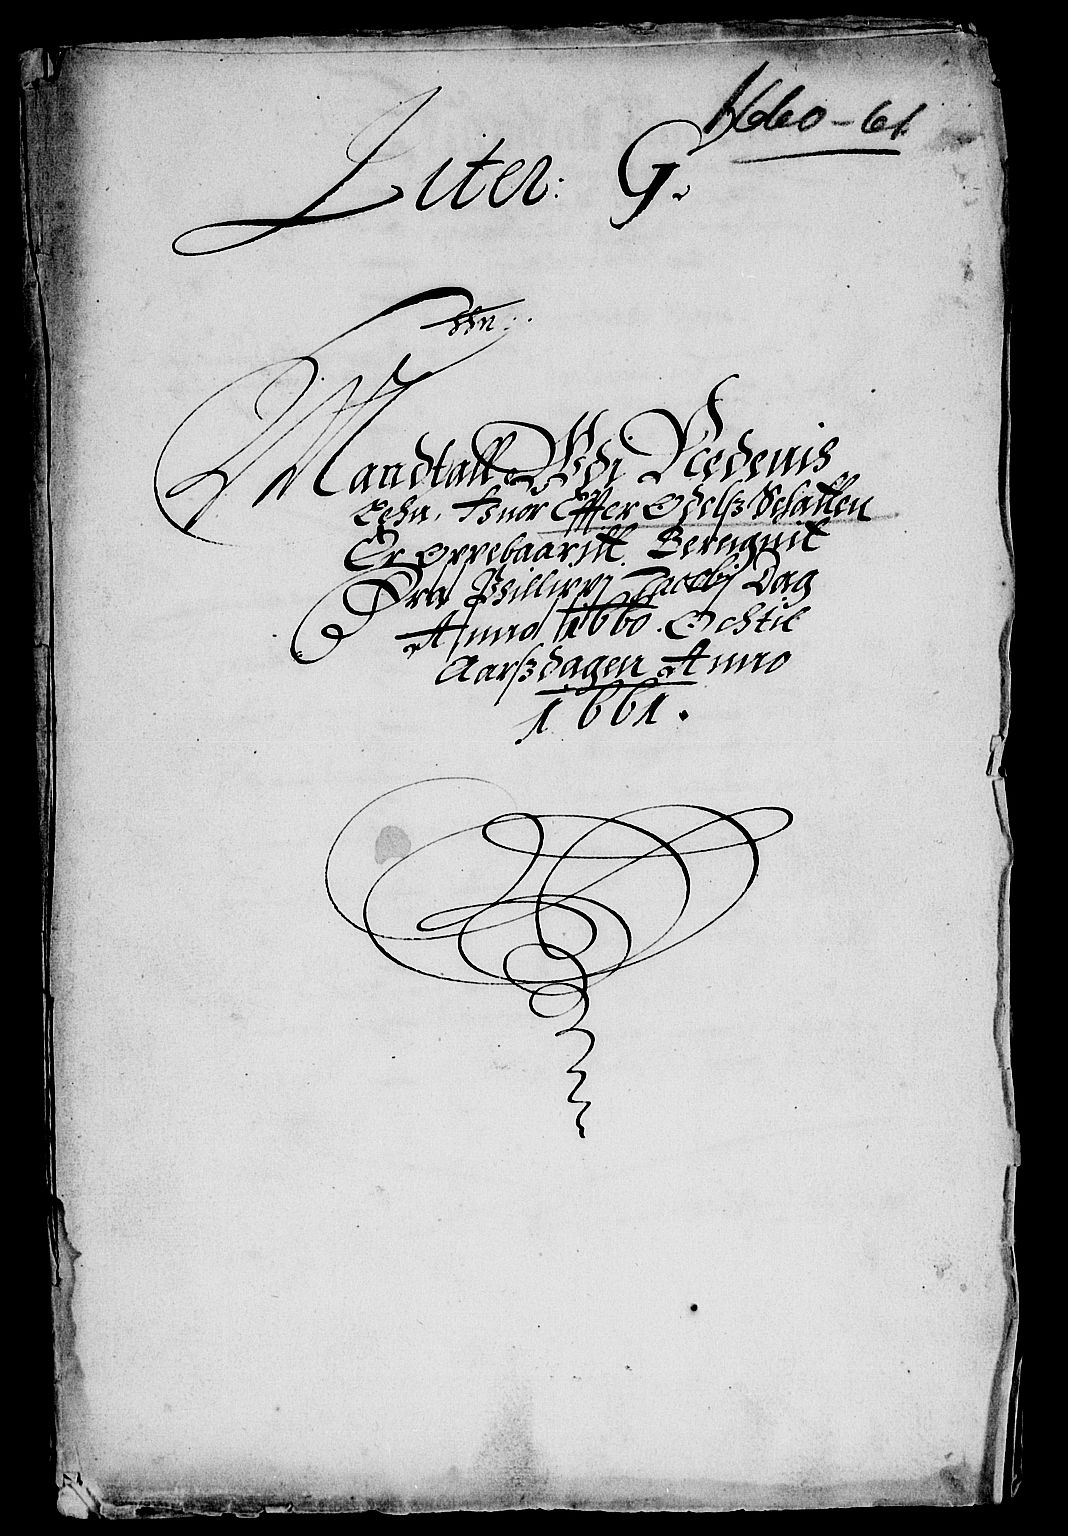 1660-61
Liter: G.
Een:
Mandtall Udj Nedenis
Lehn. huor Effter Odelß Schatten
Er oppebaaritt. Beregnit
Fra Phillippj Jacobj Dag
Anno 1660. Och til
Aarßdagen Anno
1661.